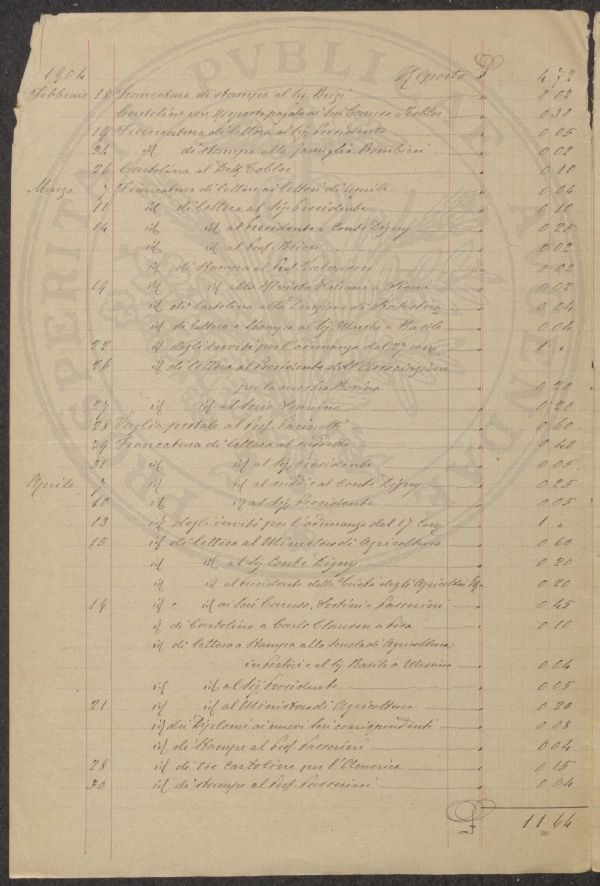 1904 Riporto £ 4 72
Febbraio 18 Francatura di stampa al Sig. 0 02
Cartoline con risposta pagata ai Soci Caruso e 0 30
19 Francatura di lettera al Sig. Presidente 0 05
24 id di stampa alla famiglia Bombicci 0 02
26 Cartolina al Dott. 0 10
Marzo 7 Francatura di lettere 0 04
11 id di lettera al Sig. Presidente 0 10
14 id id al Presidente e Conte Digny 0 25
id id al Prof. 0 02
id di stampa al Prof. 0 02
19 id id alla Rivista Italiana a 0 02
id di Cartolina alla Direzione di 0 04
id di lettera e stampa ai Sig. e Basile 0 04
22 id degli inviti per l'adunanza del 27 corr. 1 "
26 id di lettera al Presidente dell'Associazione
per la mostra 0 20
27 id id al Socio 0 20
28 Vaglia postale al Prof. Pacinotti 0 60
29 Francatura di lettera al suddetto 0 40
31 id id al Sig. Presidente 0 05
Aprile 7 id id al sudd. al Conte Digny 0 25
10 id id al Sig. Presidente 0 05
13 id degli inviti per l'adunanza del 17 corr. 1 "
15 id di lettera al Ministero di Agricoltura 0 60
id id al Sig. Conte Digny 0 20
id id al Presidente della Società degli Agricoltori 0 20
19 id " id ai Soci Caruso, Sestini e Passerini 0 45
id di Cartolina a Carlo a Pisa 0 10
id di lettera e stampa alla Scuola di Agricoltura
in Portici e al Sig. Basile a Messina 0 04
id id al Sig. Presidente 0 05
21 id id al Ministero di Agricoltura 0 20
id dei Diplomi ai nuovi Soci corrispondenti 0 08
id di stampe al Prof. Passerini 0 04
28 id di tre cartoline per l'America 0 15
30 id di stampe al Prof. Passerini 0 04
£ 11 64
PROSPERITATI PVBLICAE AVGENDAE